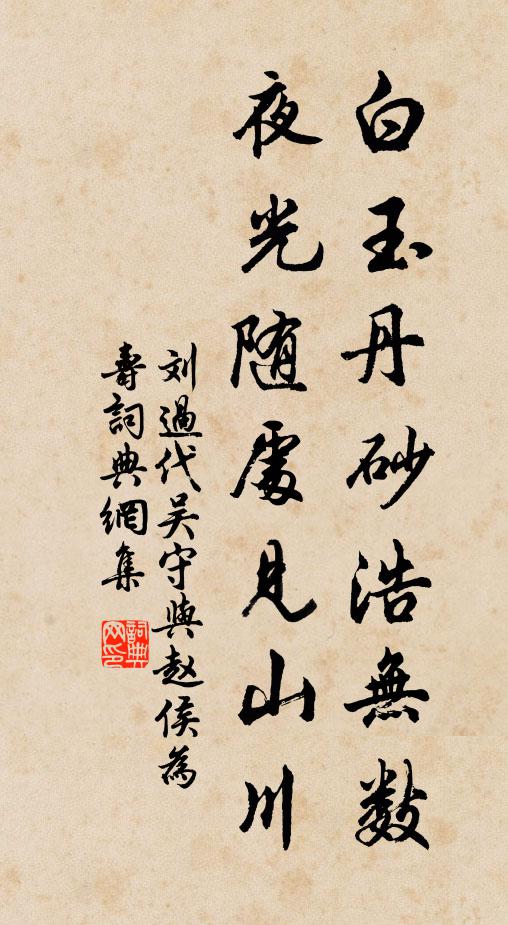 白玉丹砂浩無数
夜光随處見山川
刘過代吴守與赵侯為
壽詞典網集
詞典
网印